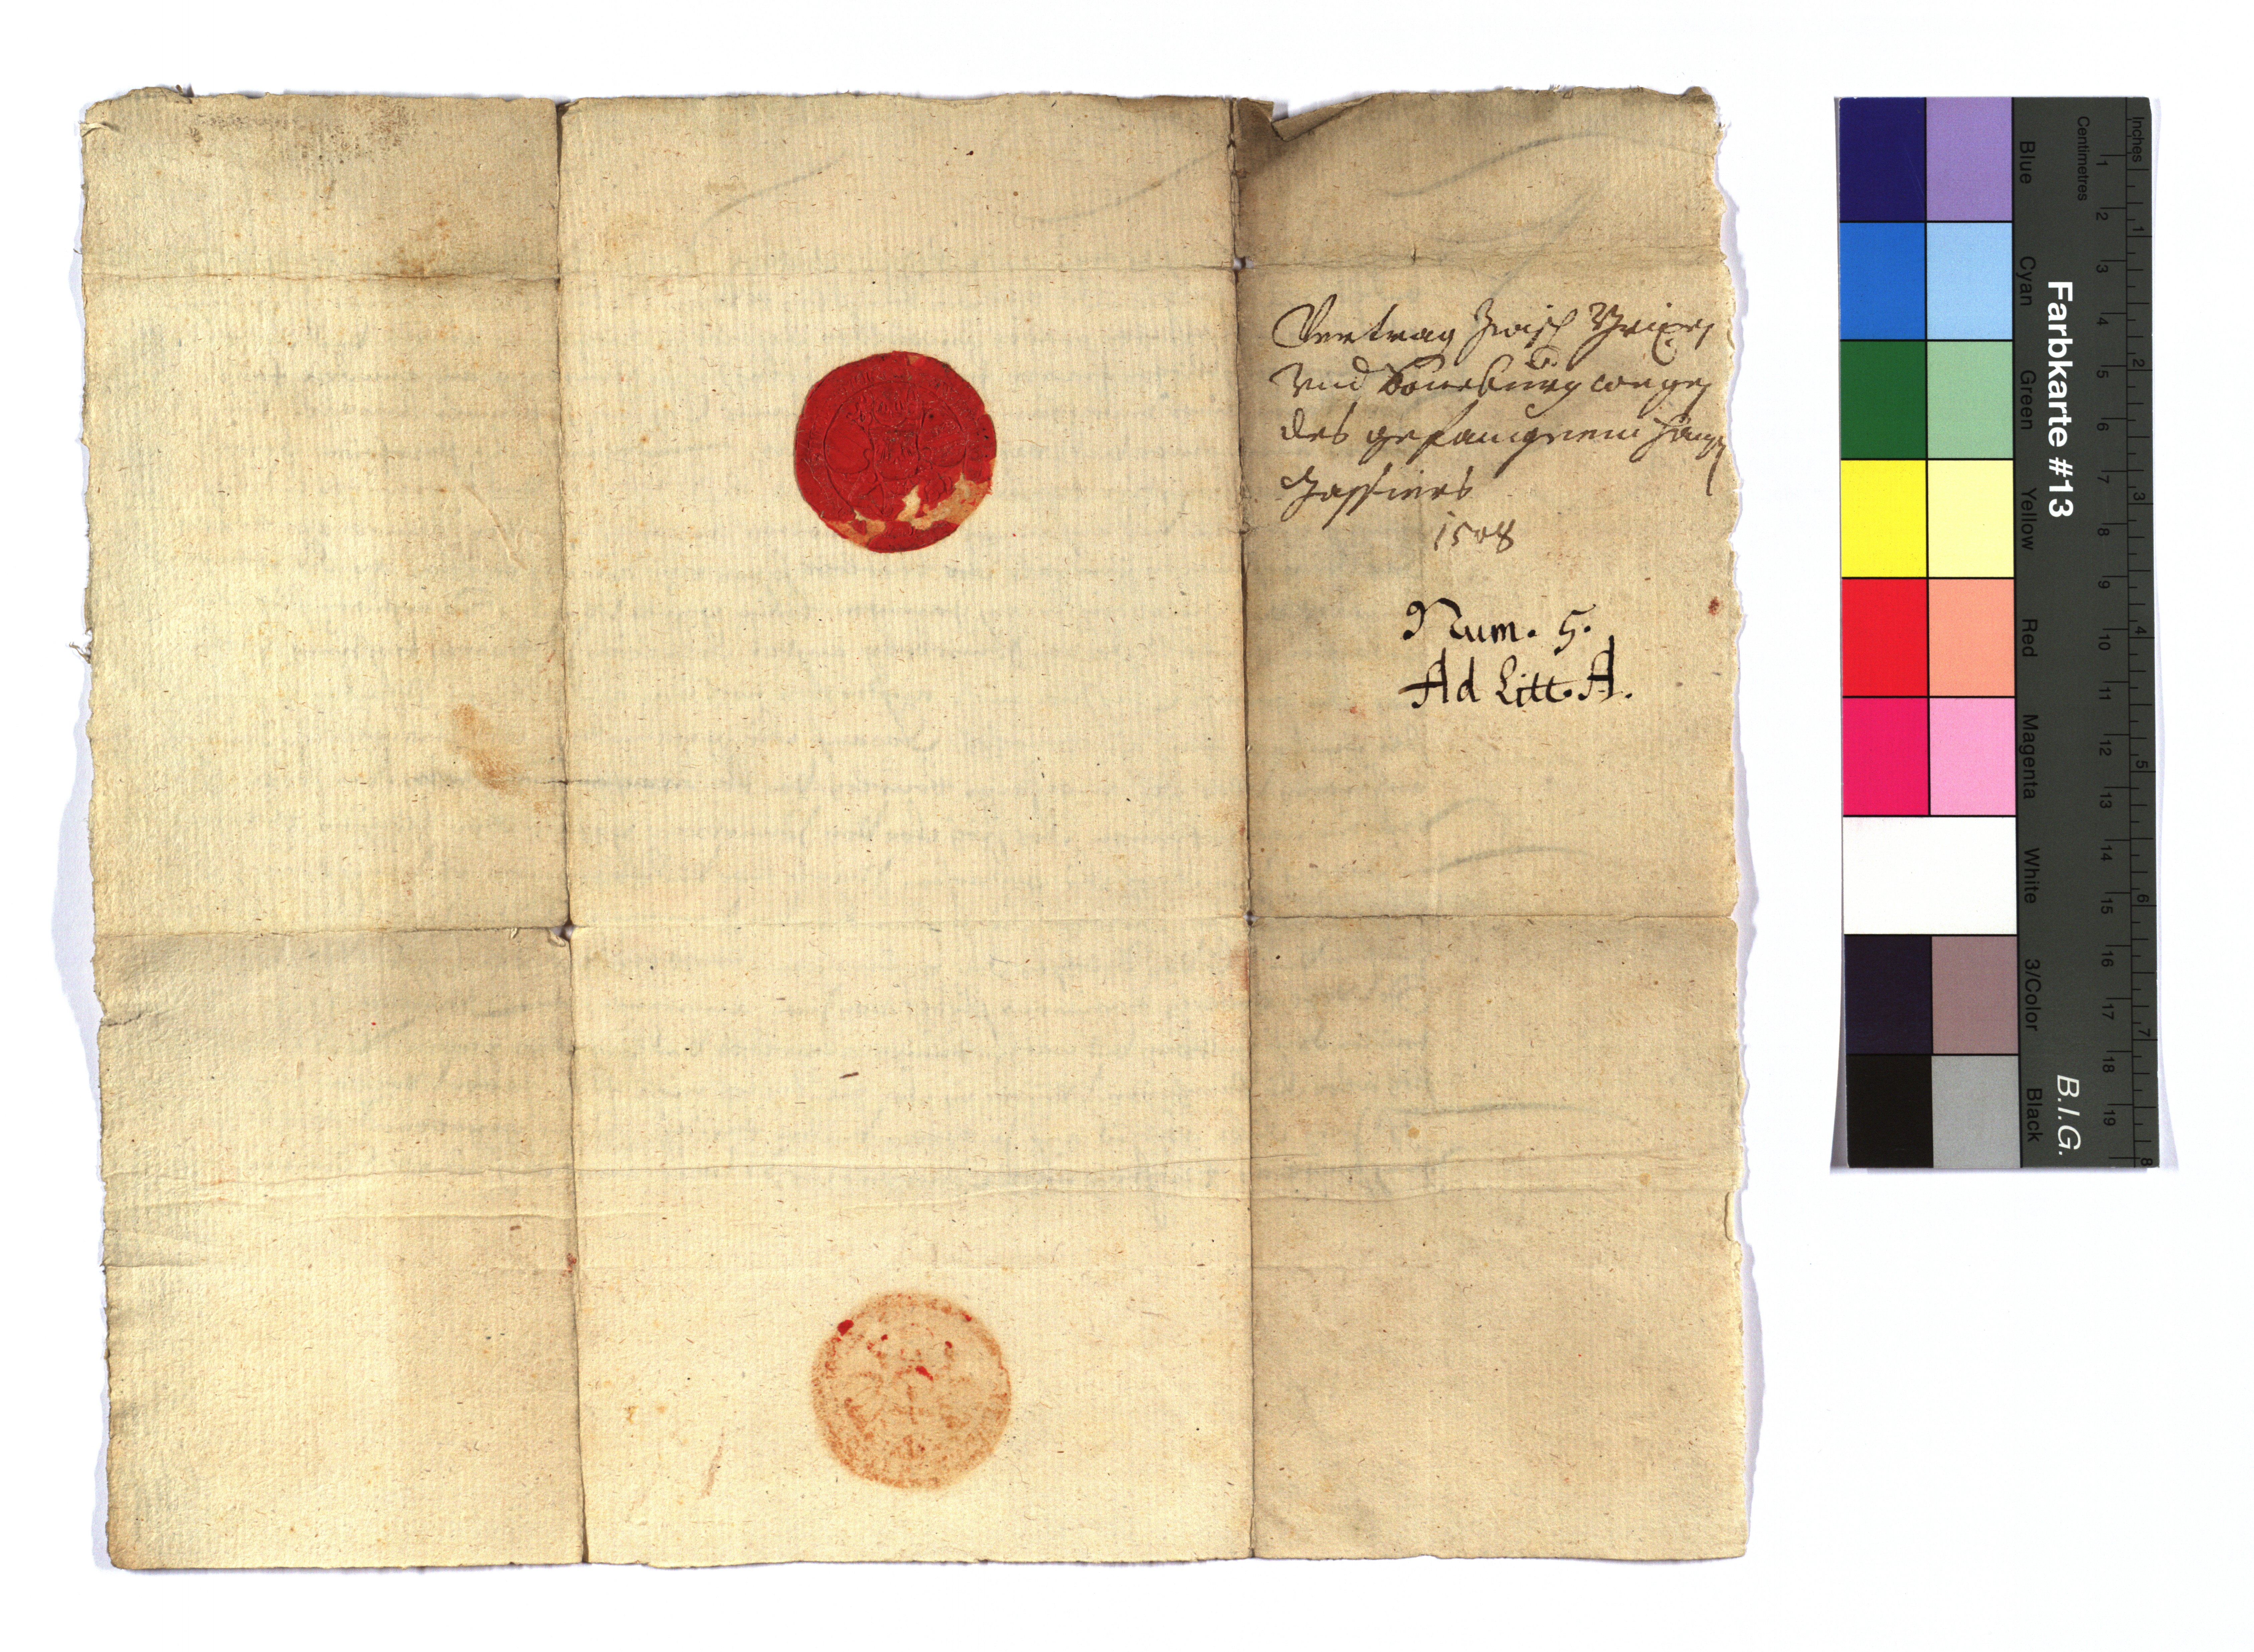 Vertrag zwisch
Vnd Soneburg wegen
des gefangnenn Hanns
1508
Num. 5.
Ad Litt. A.
Farbkarte #13
B.I.G.
Blue
Cyan
Green
Yellow
Red
Magenta
White
3/Color
Black
Centimetres
1 2 3 4 5 6 7 8 9 10 11 12 13 14 15 16 17 18 19
Inches
1 2 3 4 5 6 7 8